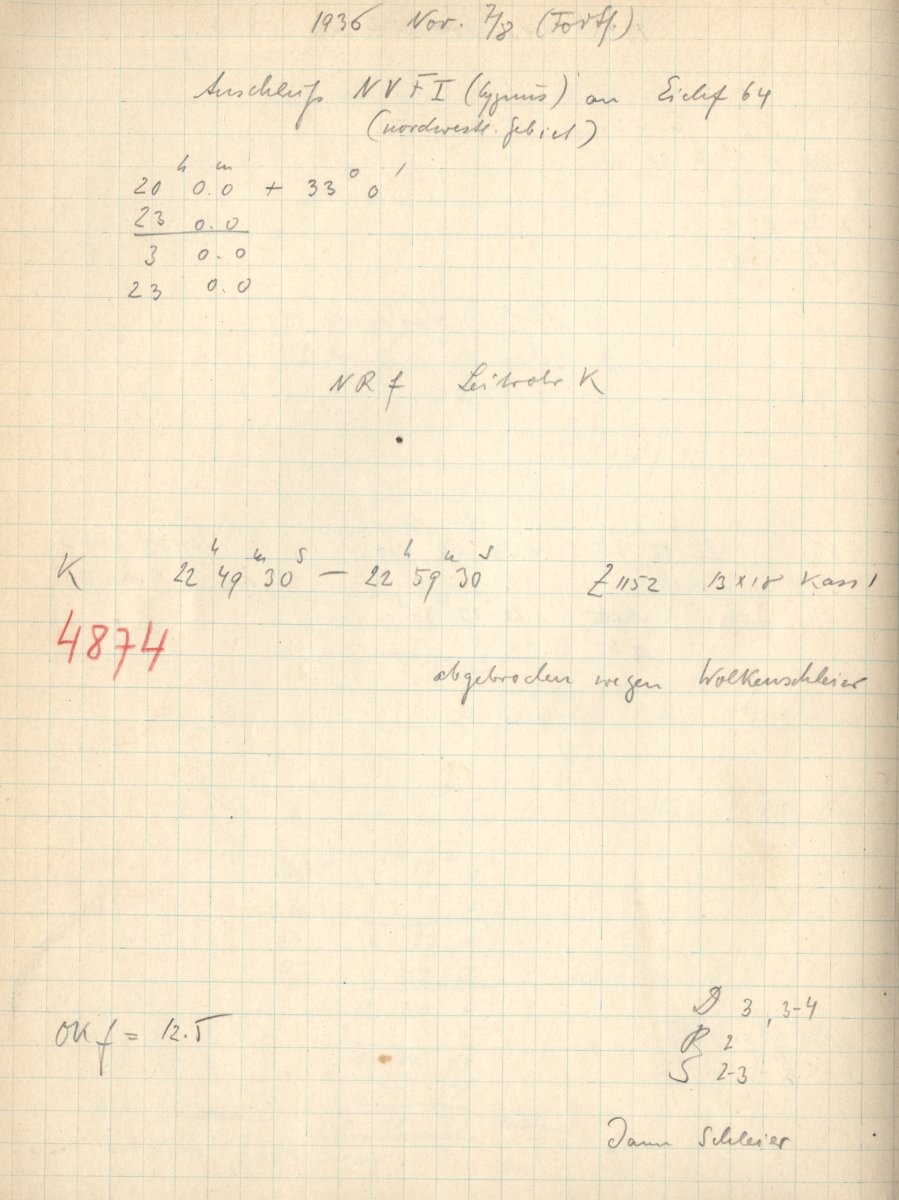 1936 Nov. 7/8 (Forts.)
Anschluß NVF I (Cygnus) an Eichf 64
(nordwestl. Gebiet)
20ʰ 0.0ᵐ + 33° 0'
23 0.0
3 0.0
23 0.0
NR f Leitrohr K
K 22ʰ 49ᵐ 30ˢ — 22ʰ 59ᵐ 30ˢ Z 1152 13 x 18 Kass 1
4874
abgebrochen wegen Wolkenschleier
D 3, 3-4
OK f = 12.5
R 2
S 2-3
Dann Schleier